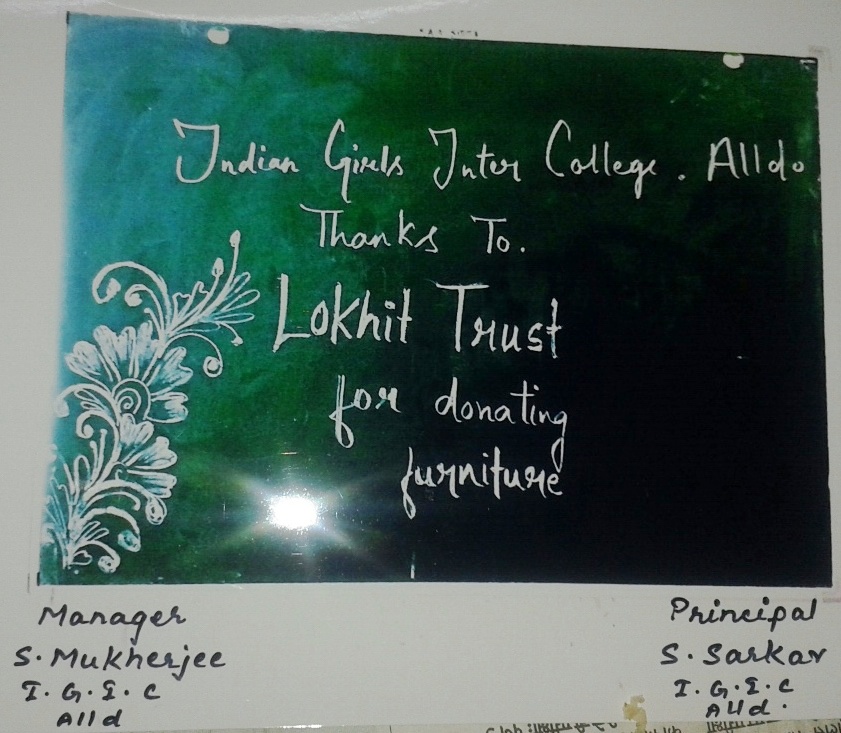 Indian Girls Inter College. Alld.
Thanks To.
Lokhit Trust
for donating
furniture
Manager
S. Mukherjee
I. G. I. C
Alld
Principal
S. Sarkar
I. G. I. C
Alld.